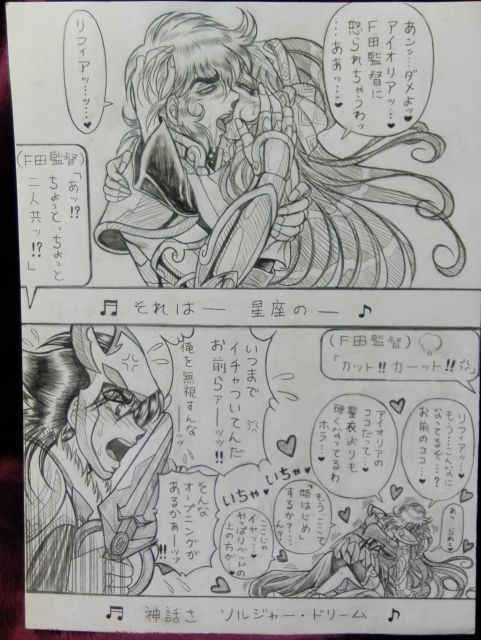 あンッ…ダメよッ
アイオリアッ…♥
F田監督に
怒られちゃうわッ
…ああッ…♥
リフィアッ…ッ…♥
(F田監督)
「あッ!?
ちょっと、ちょっと
二人共ッ!?」
♬ それは ― 星座の ― ♪
(F田監督)
「カット!!カーット!!
いつまで
イチャついてんだ
お前らァーッッ!!
俺を無視すんなーッッ
そんな
オープニングが
あるかぁーッッ
リフィアッ…♥
もう…こんなに
なってるぞ…?
お前のココ…♥
アイオリアの
ココだって…♥
聖衣よりも
硬くなってるわ
ホラ…♥
あッ…らめぇ♥
もうここで
「姫はじめ」
するか?…
ん?
ここじゃ
イヤッ…♥
やっぱりベッドの
上の方が…♥
いちゃ♥
いちゃ♥
♬ 神話さ ソルジャー・ドリーム ♪